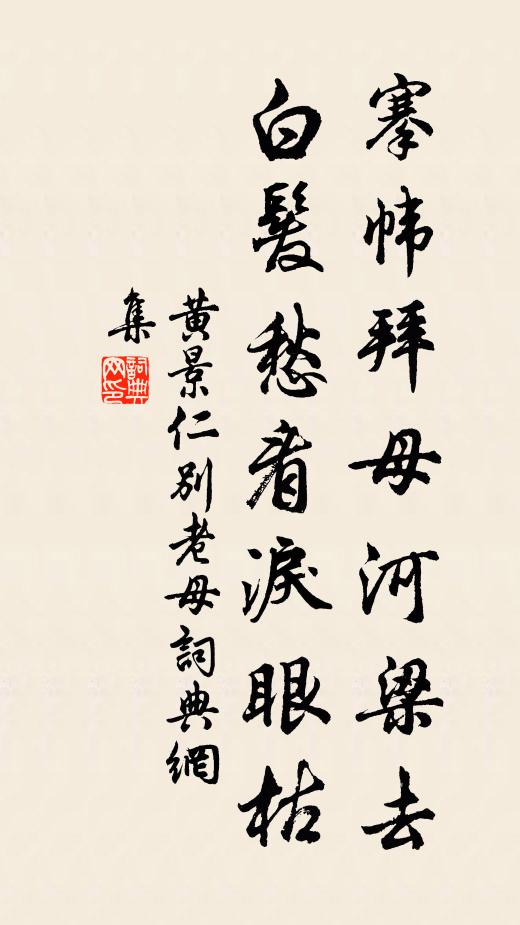 搴帏拜母河梁去
白髮愁看淚眼枯
黃景仁別老母詞典網
集
詞典網印